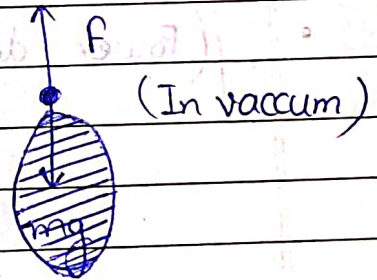 F
(In vaccum)
mg